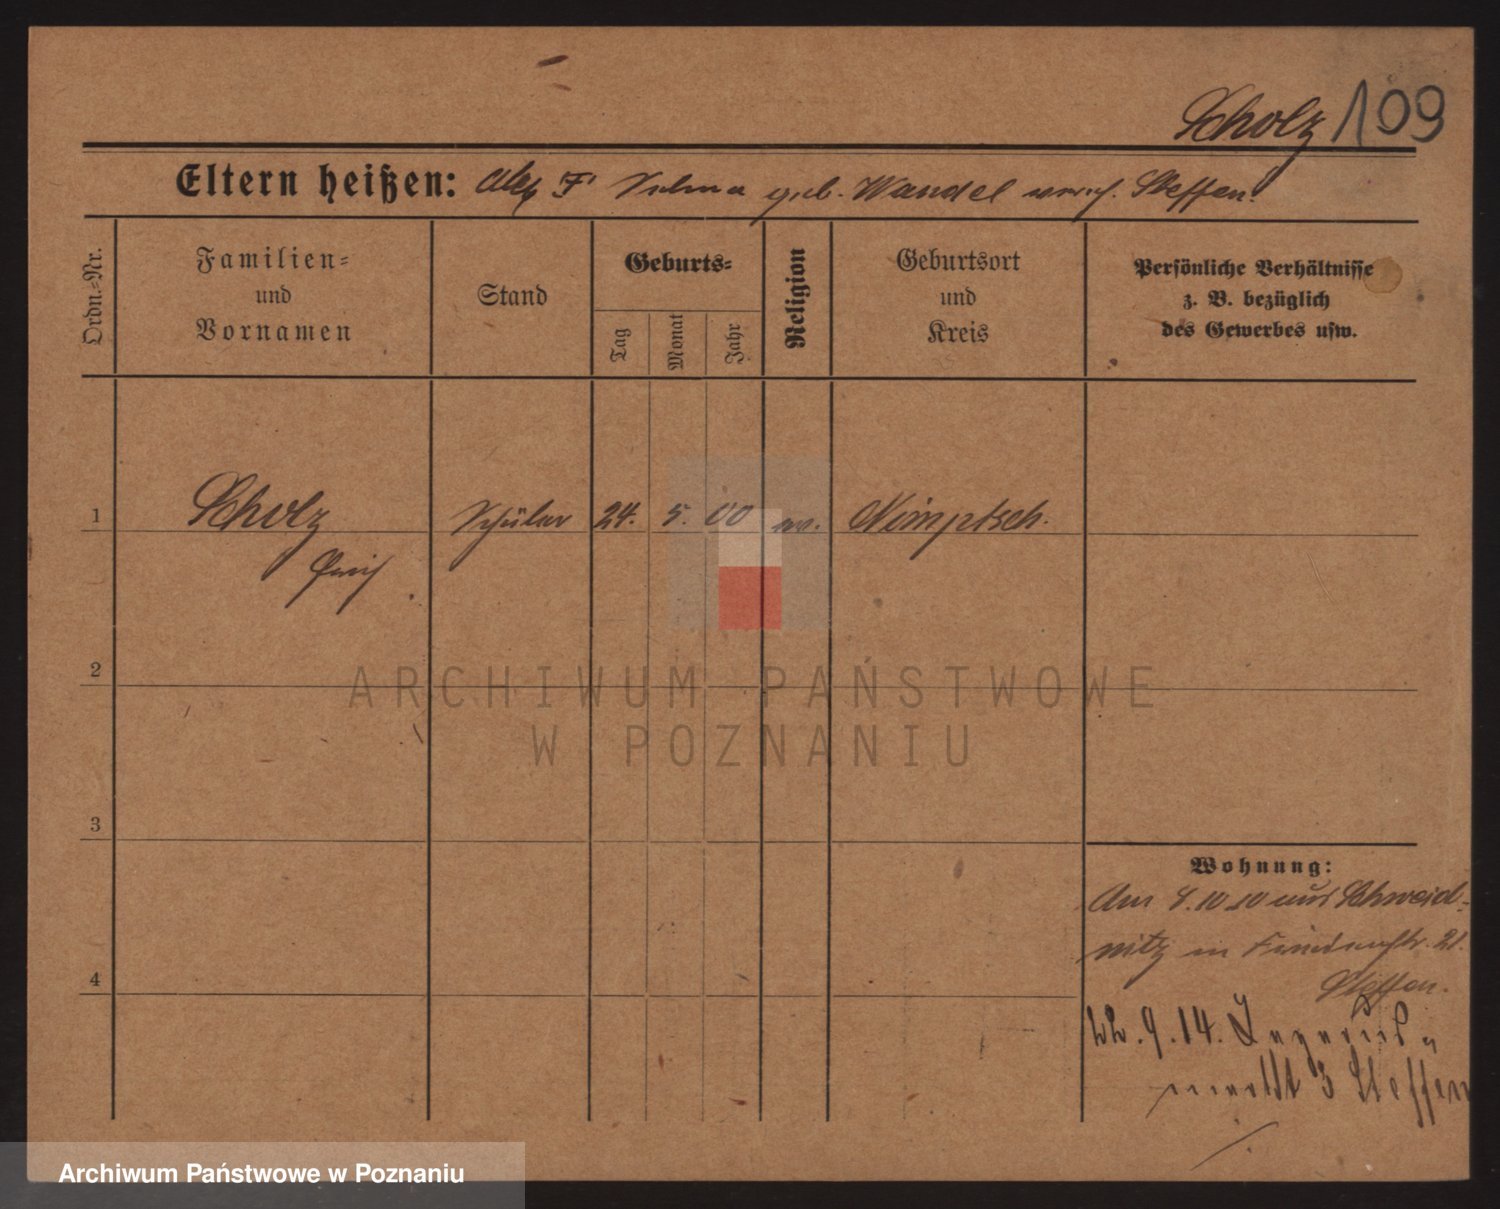 Scholz 109
Eltern heißen: Alex F Selma geb. Wandel verw. Steffen.
Ordn.-Nr.
Familien-
und
Vornamen
Stand
Geburts-
Tag
Monat
Jahr
Religion
Geburtsort
und
Kreis
Persönliche Verhältnisse
z. B. bezüglich
des Gewerbes usw.
1 Scholz Schüler 24. 5. 00 ev. Nimptsch.
2
3
4
Wohnung:
Am 8.10 10 aus Schweid-
nitz in 21.
Steffen.
22.9.14.
3 Steffen
ARCHIWUM PAŃSTWOWE
W POZNANIU
Archiwum Państwowe w Poznaniu